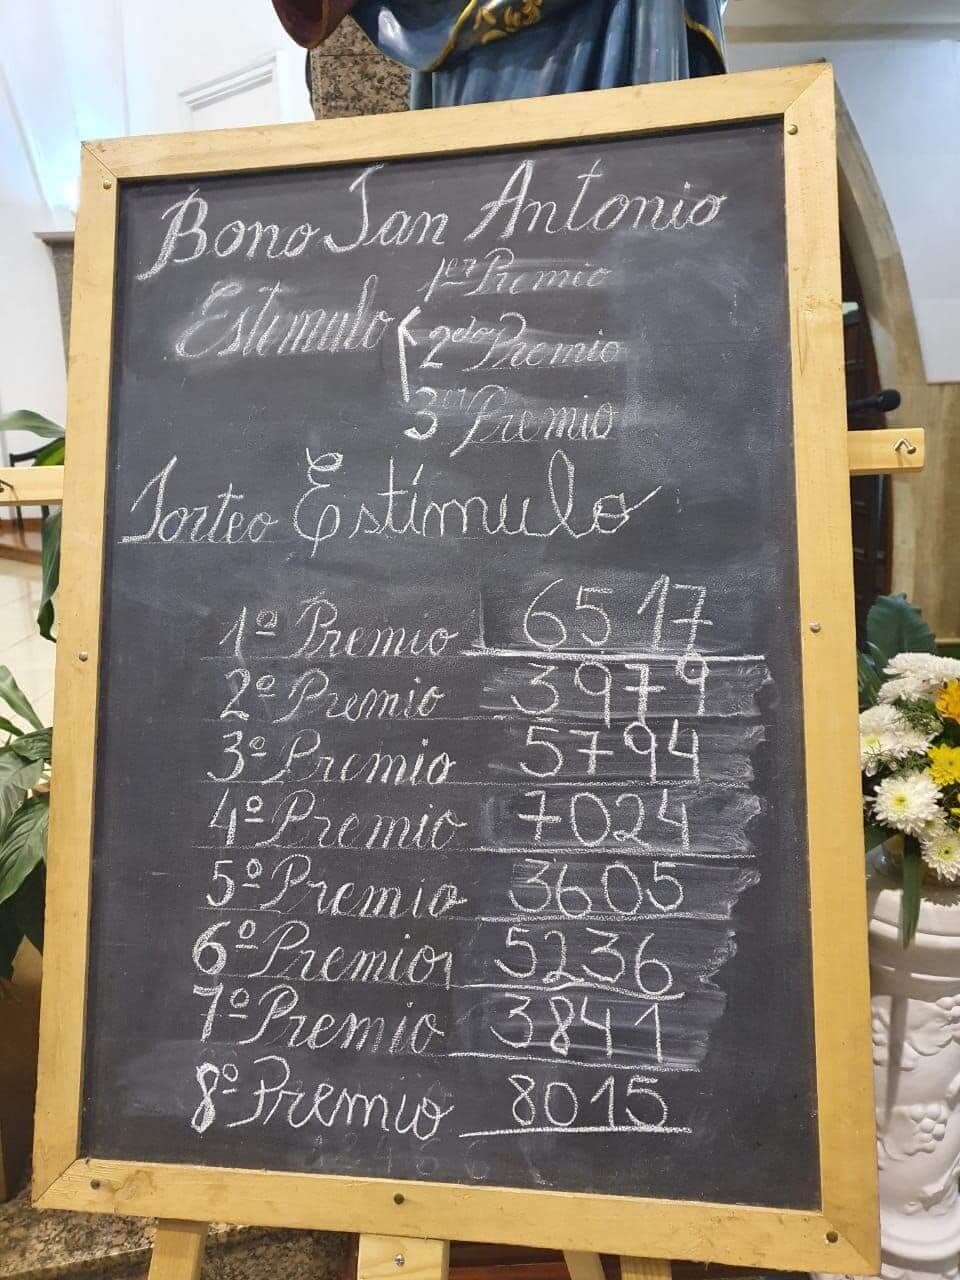 Bono San Antonio
1er Premio
Estimulo
2do Premio
3er Premio
Sorteo Estímulo
1º Premio 6517
2º Premio 3979
3º Premio 5794
4º Premio 7024
5º Premio 3605
6º Premio 5236
7º Premio 3841
8º Premio 8015